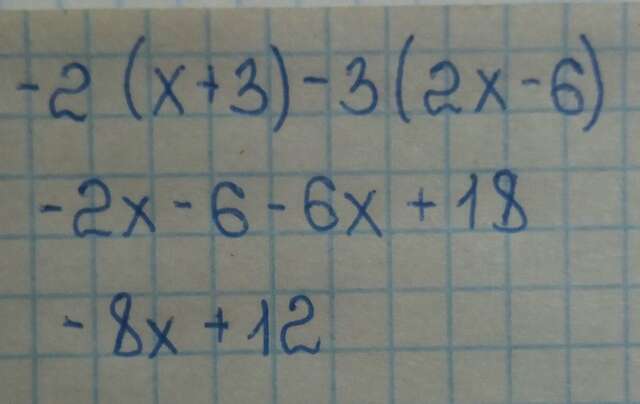 -2 (x+3)-3(2x-6)
-2x-6-6x+18
-8x+12